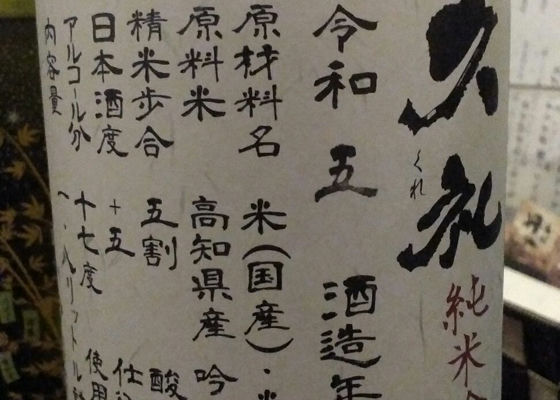 久礼
くれ
純米
令和 五 酒造年
原材料名 米(国産)・米
原料米 高知県産 吟
精米歩合 五割 酸
日本酒度 +五 仕
アルコール分 十七度 使用
内容量 一・八リットル